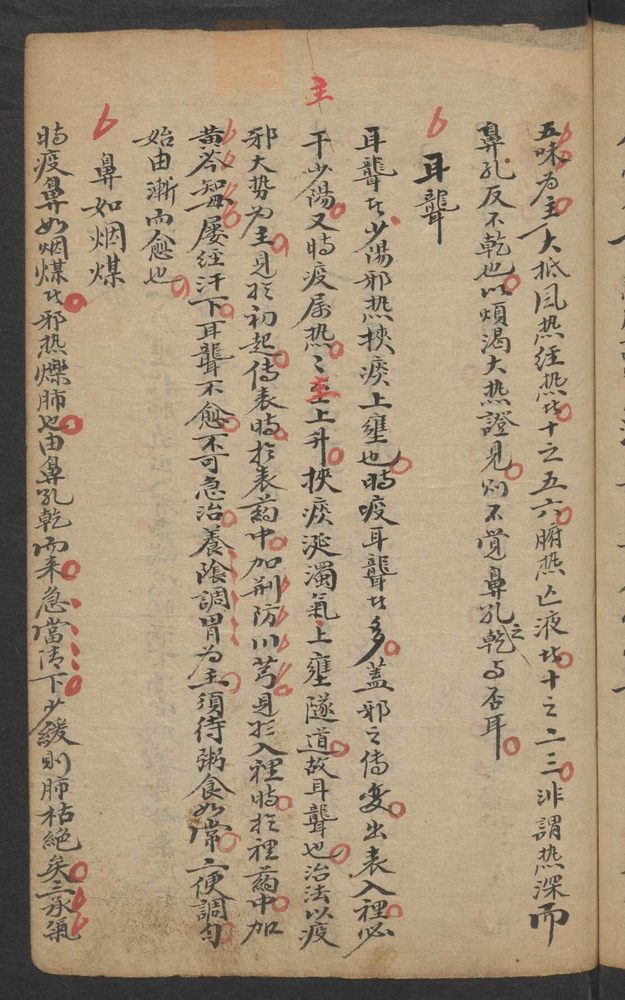 五味為主大抵風热经热者十之五六腑热亡液者十之二三非謂热深而
鼻孔反不乾也以煩渴大热證見則不覺鼻孔乾之与否耳
耳聾
耳聾者少陽邪热挾痰上壅也時疫耳聾者多盖邪之傳变出表入裡必
干少陽又時疫屬热〻主上升挾痰涎濁氣上壅隧道故耳聾也治法以疫
邪大势為主見於初起傳表時於表葯中加荆防川芎見於入裡時於裡葯中加
黄芩知母屡经汗下耳聾不愈不可急治養陰調胃為主須待粥食如常二便調匀
始由漸而愈也
鼻如烟煤
時疫鼻如烟煤者邪热爍肺也由鼻孔乾而来急當清下少緩則肺枯絶矣三承氣
主